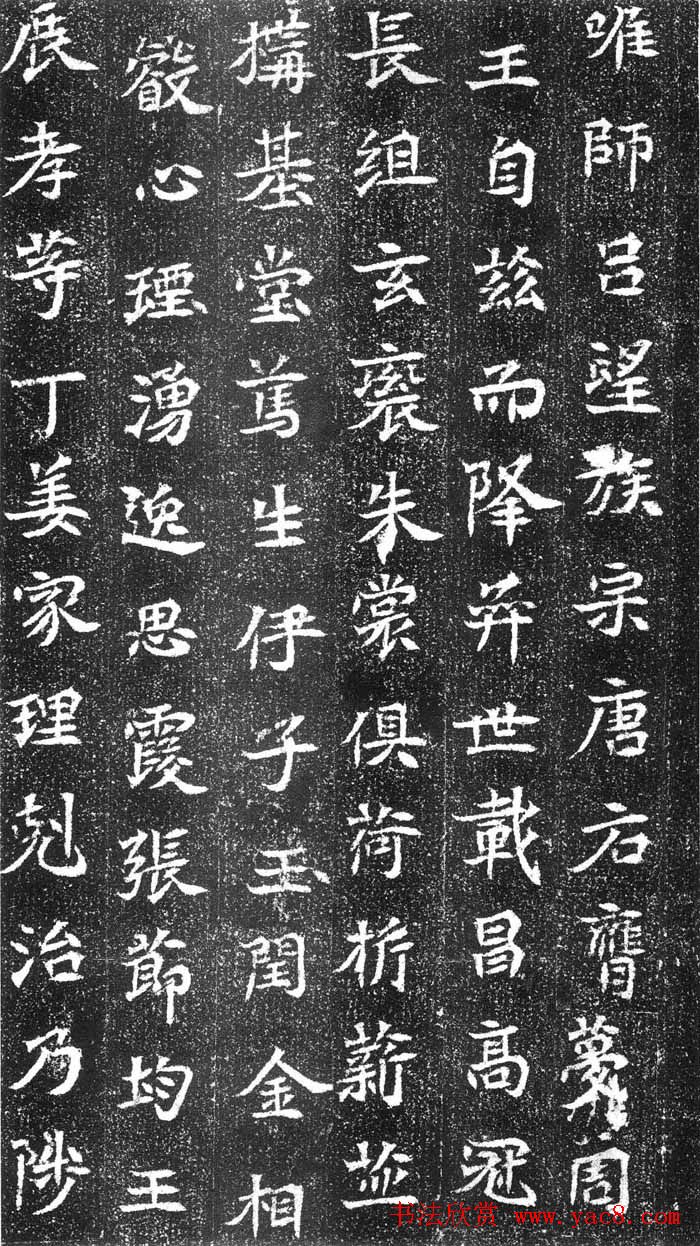 唯師吕望族宗唐右膺夢周
王自兹而降弈世載昌高冠
長組玄衮朱裳俱荷析薪並
搆基堂篤生伊子玉閏金相
叡心理湧逸思霞張節均王
辰孝等丁姜家理剋治乃陟
书法欣赏 www.yac8.com